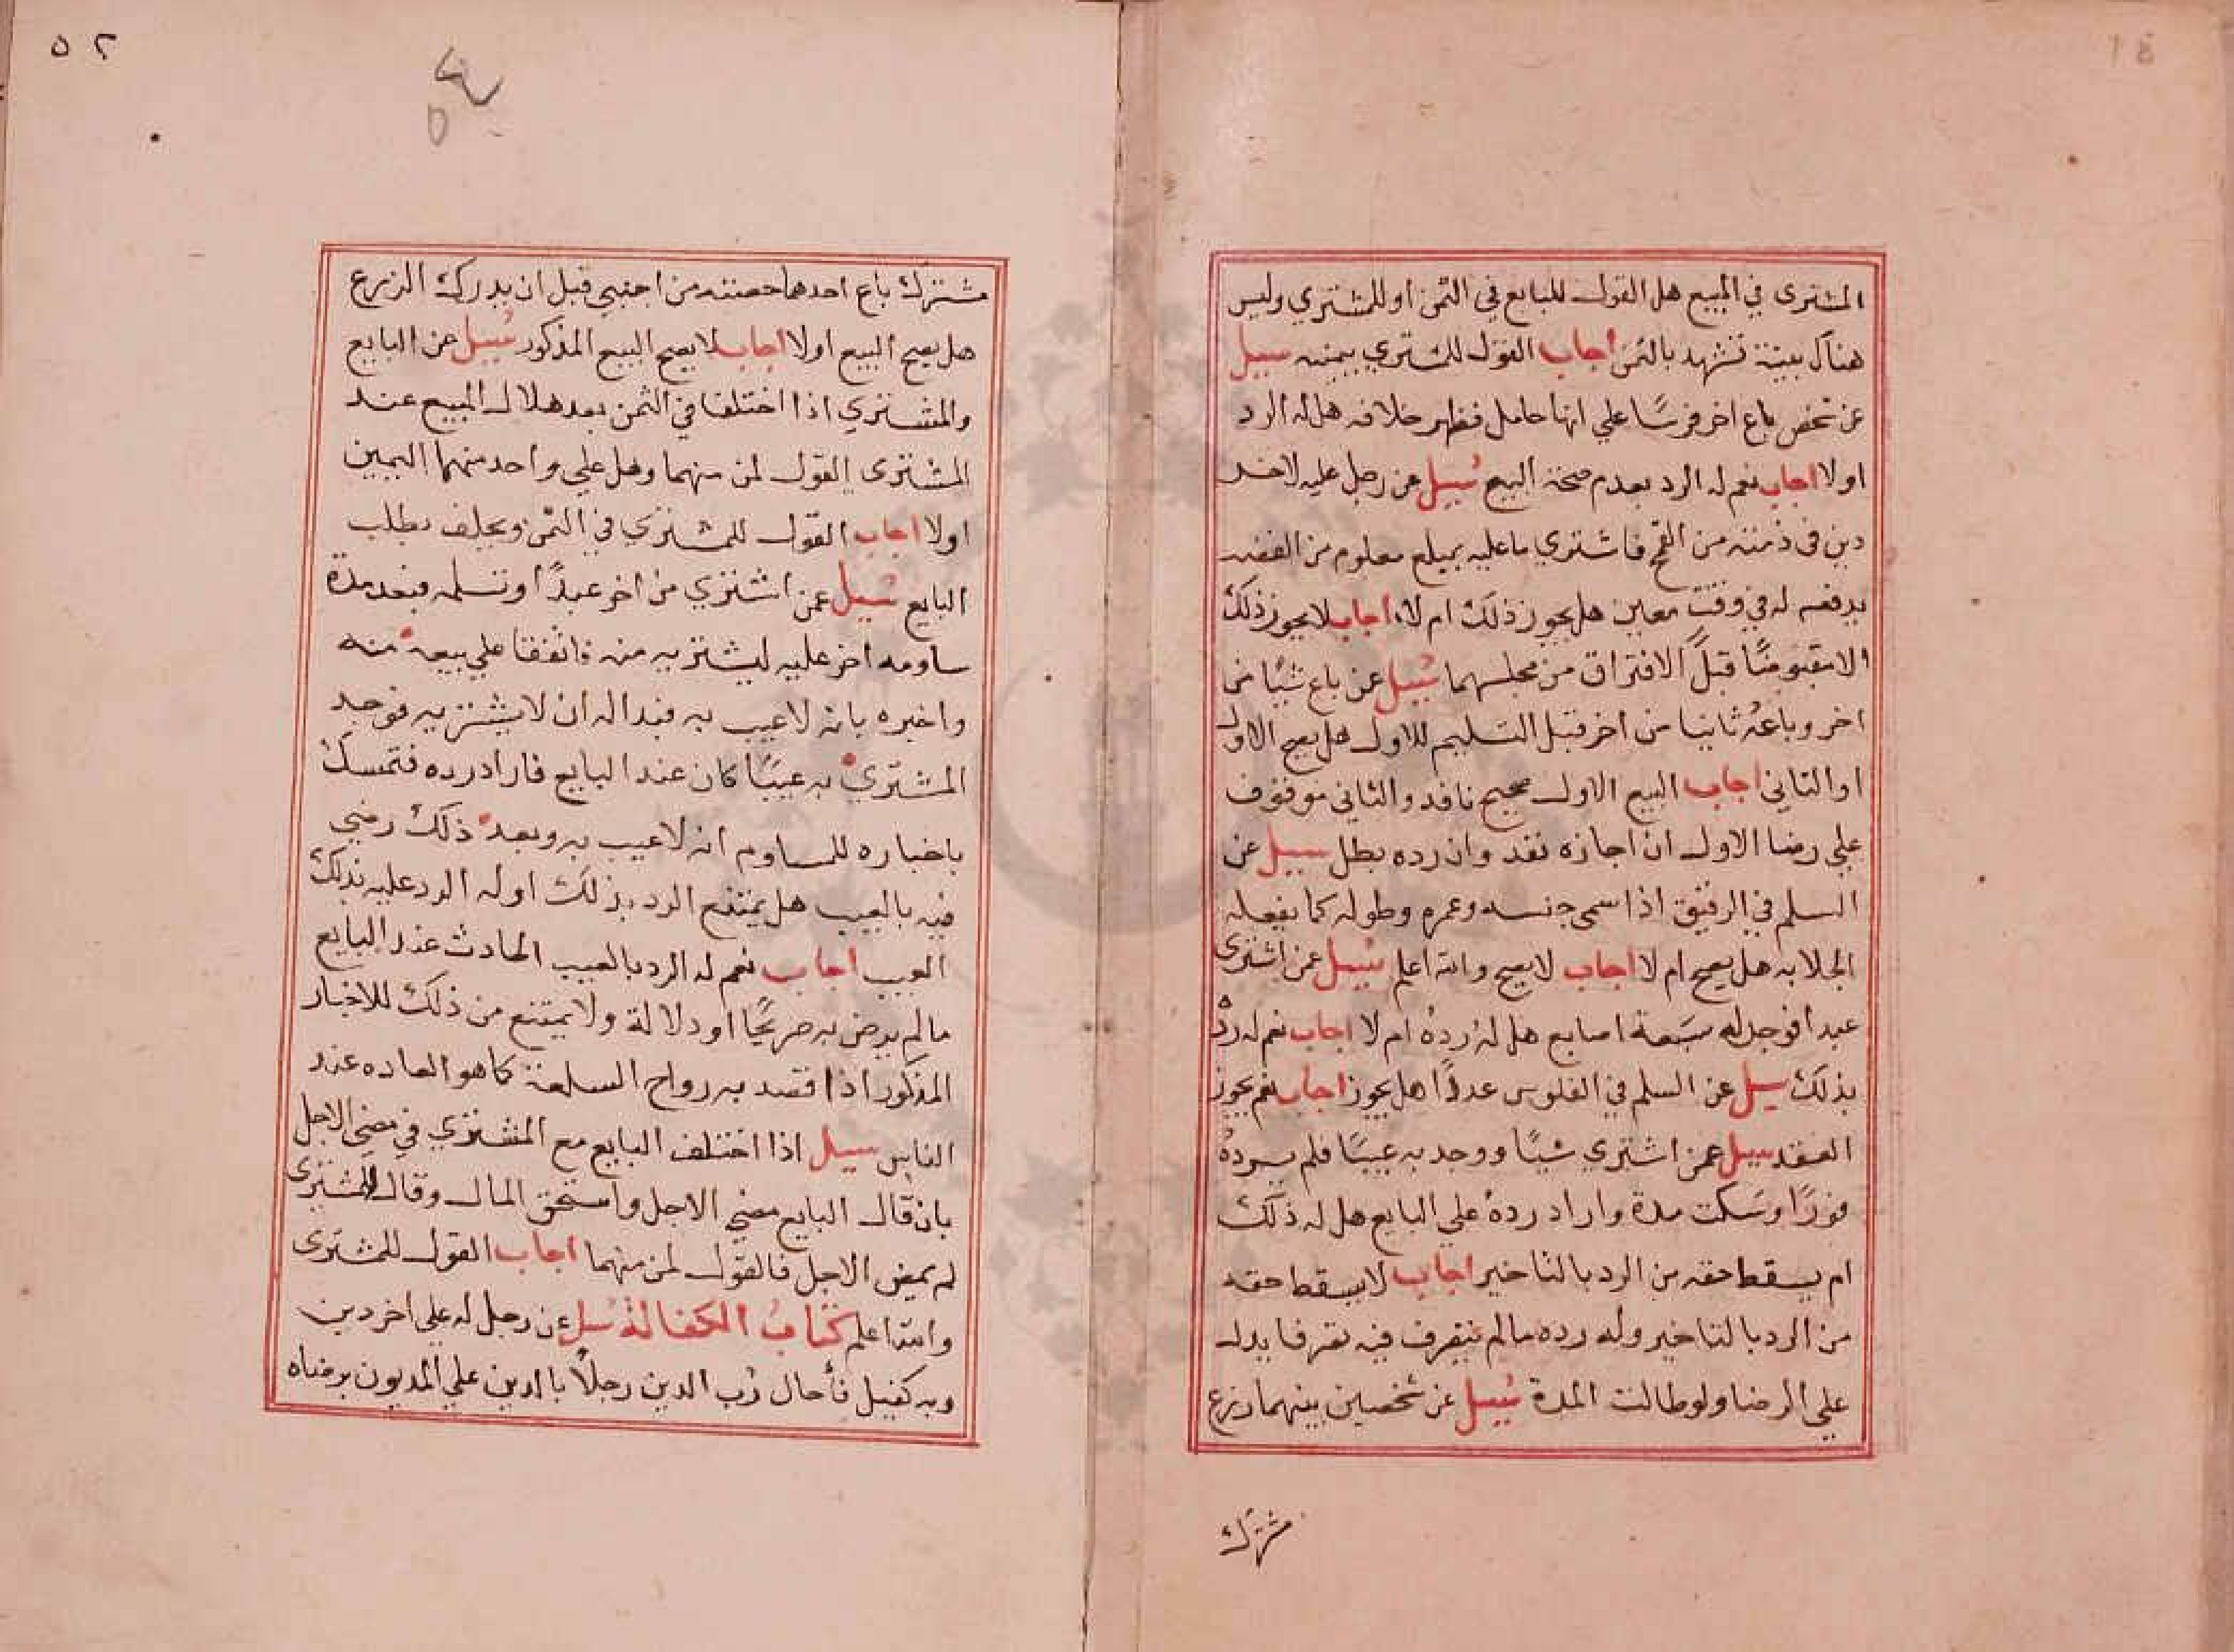 المشترى في المبيع هل القول للبايع في الثمن او للمشتري وليس
هناك بينة تشهد بالثمن اجاب القول للمشتري بيمينه سيل
عن شخص باع اخر فرسًا علي انها حامل فظهر خلافه هل له الرد
اولا اجاب نعم له الرد بعدم صحة البيع سُيل عن رجل عليه لاخر
دين في ذمته من القمح فاشتري ما عليه بمبلغ معلوم من الفضه
يدفعه له في وقت معين هل يجوز ذلك ام لا اجاب لا يجوز ذلك
الا مقبوضًا قبل الافتراق من مجلسهما سُيل عن باع شيًا من
اخر وباعه ثانيا من اخر قبل التسليم للاول هل يصح الاول
او الثاني اجاب البيع الاول صحيح نافد والثاني موقوف
علي رضا الاول ان اجازه نفد وان رده بطل سيل عن
السلم في الرقيق اذا سمى جنسه وعمره وطوله كما يفعله
الجلابه هل يصح ام لا اجاب لا يصح والله اعلم سُيل عمن اشترى
عبدا فوجد له سبعة اصابع هل له رده ام لا اجاب نعم له رده
بذلك سيل عن السلم في الفلوس عددًا هل يجوز اجاب نعم يجوز
العقد سيل عمن اشتري شيًا ووجد به عيبًا فلم يرده
فورًا وسكت مدة واراد رده علي البايع هل له ذلك
ام يسقط حقه من الرد بالتاخير اجاب لا يسقط حقه
من الرد بالتاخير وله رده ما لم يتصرف فيه تصرفا يدل
علي الرضا ولو طالت المدة سُيل عن شخصين بينهما زرع
مشترك
٥٢
مشترك باع احدهما حصته من اجنبي قبل ان يدرك الزرع
هل يصح البيع اولا اجاب لا يصح البيع المذكور سُيل عن البايع
والمشتري اذا اختلفا في الثمن بعد هلاك المبيع عند
المشترى القول لمن منهما وهل علي واحد منهما اليمين
اولا اجاب القول للمشتري في الثمن ويحلف بطلب
البايع سُيل عمن اشتري من اخر عبدًا وتسلمه فبعد مدة
ساومه اخر عليه ليشتريه منه فاتفقا علي بيعه منه
واخبره بانه لا عيب به فبدا له ان لا يشتريه فوجد
المشتري به عيبًا كان عند البايع فاراد رده فتمسك
باخباره للمساوم انه لا عيب به وبعد ذلك رضي
فيه بالعيب هل يمتنع الرد بذلك اوله الرد عليه بذلك
العيب اجاب نعم له الرد بالعيب الحادث عند البايع
مالم يرض به صريحًا او دلالة ولا يمتنع من ذلك للاخبار
المذكور اذا قصد به رواج السلعة كما هو العاده عند
الناس سيل اذا اختلف البايع مع المشتري في مضي الاجل
بان قال البايع مضي الاجل واستحق المال وقال المشترى
لم يمض الاجل فالقول لمن منهما اجاب القول للمشترى
والله اعلم كتاب الكفالة سُيل عن رجل له علي اخر دين
وبه كفيل فأحال رب الدين رجلًا بالدين علي المديون برضاه